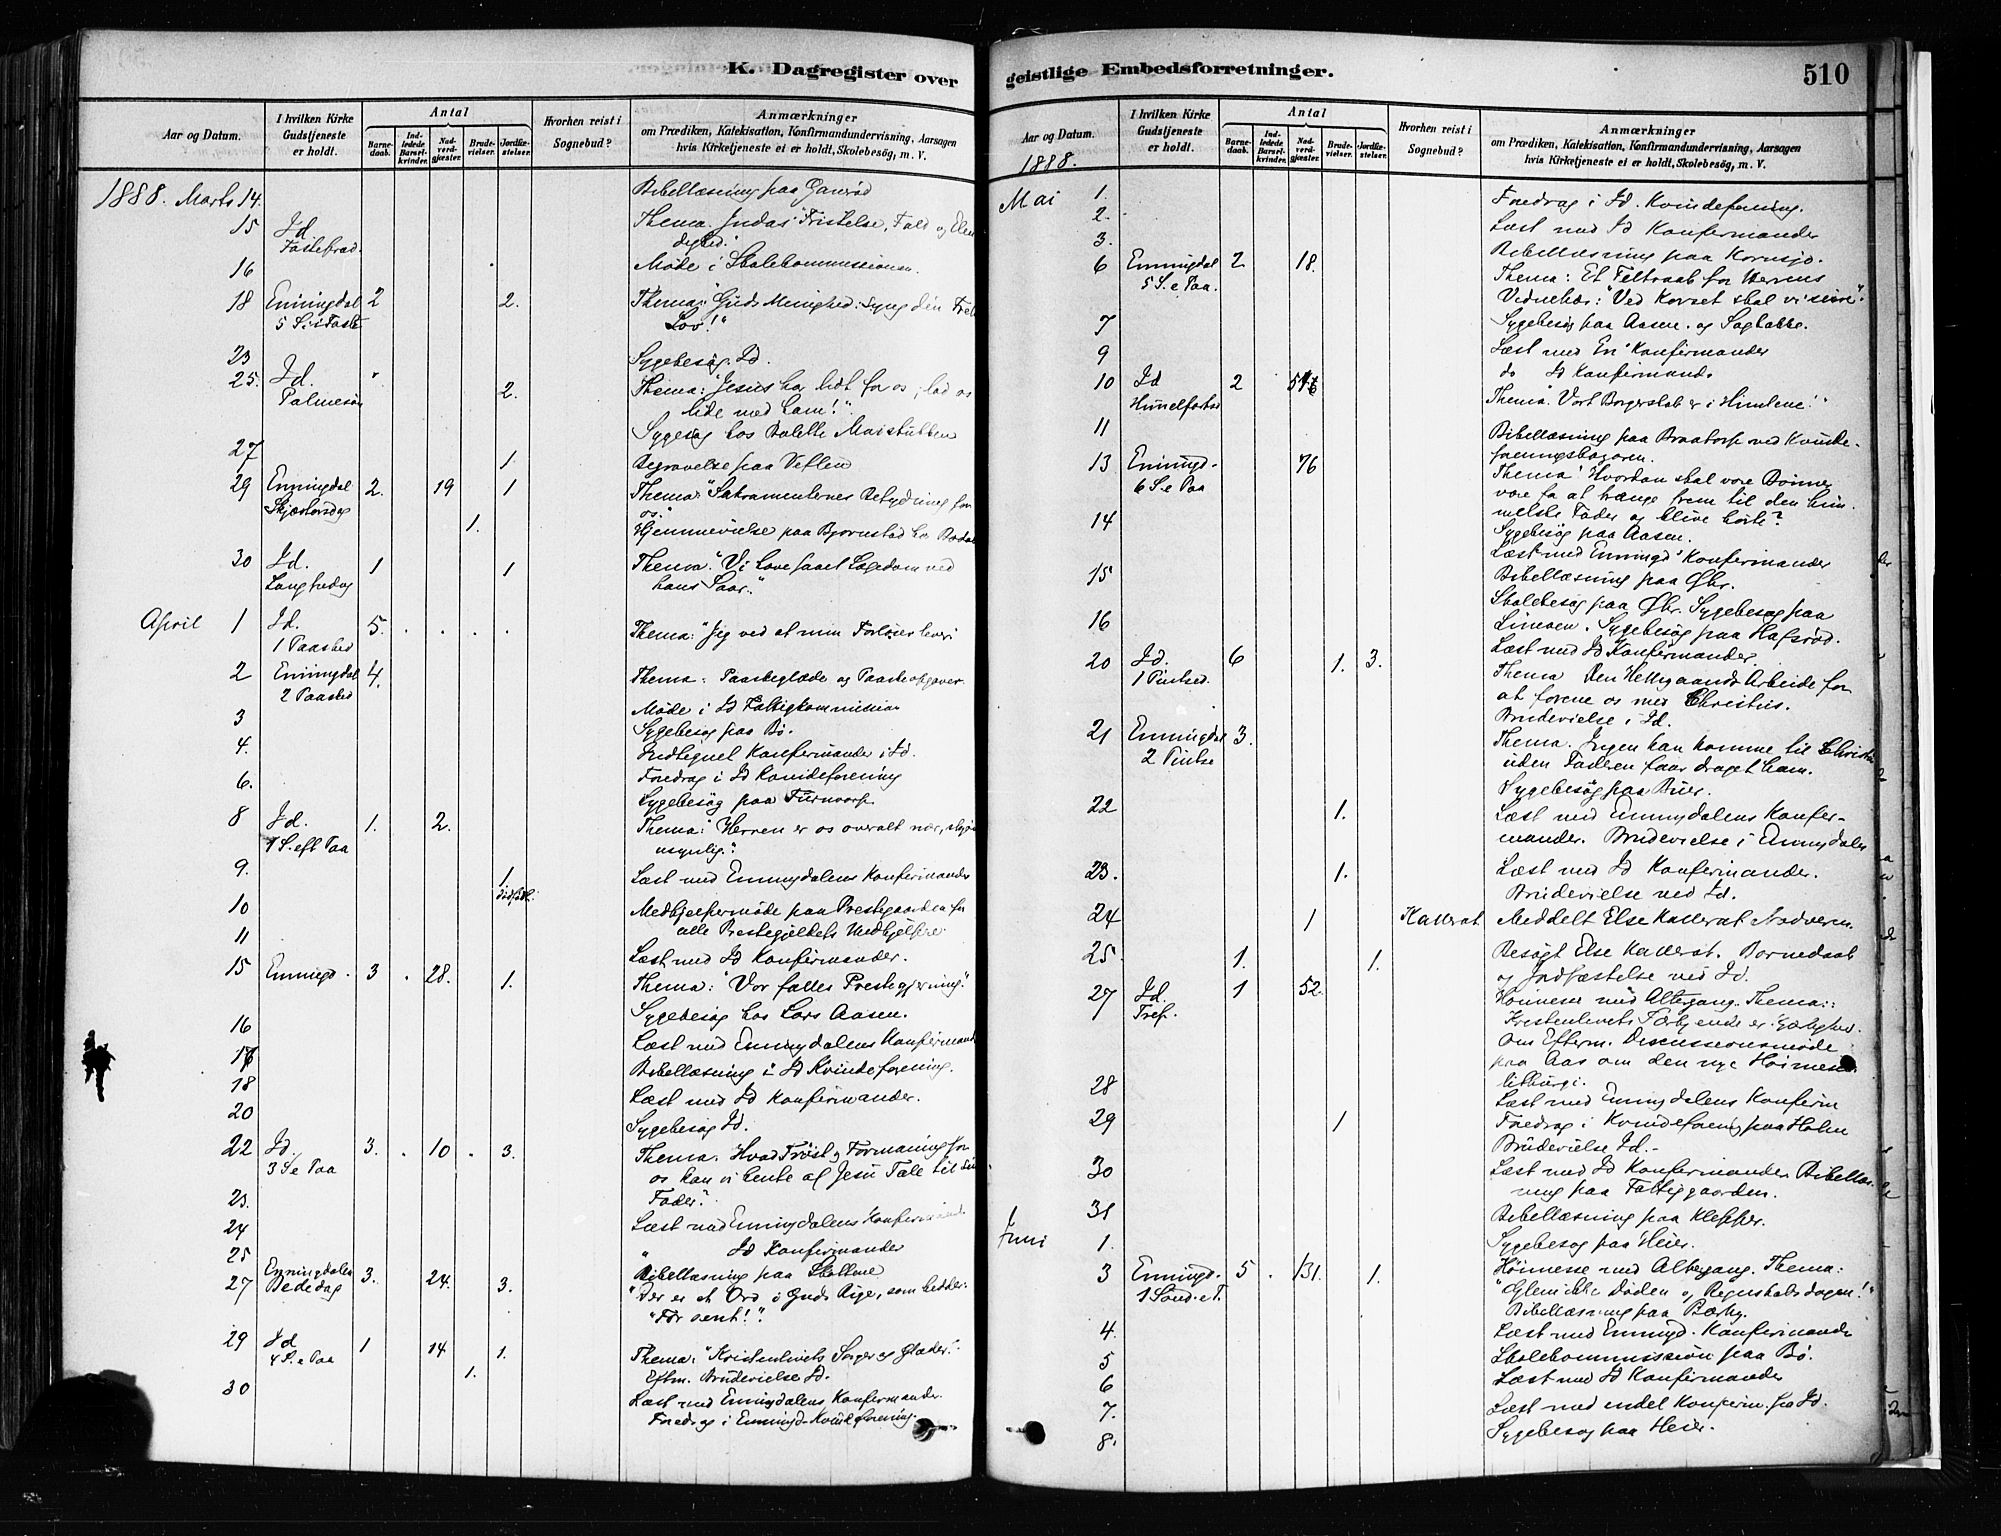 K. Dagregister over
Aar og Datum.
I hvilken Kirke Gudstjeneste er holdt.
Antal
Barnedaab.
Indledede Barselkvinder.
Nadverdgjæster.
Brudevielser.
Jordfæstelser.
Hvorhen reist i Sognebud?
Anmærkninger
om Prædiken, Katekisation, Konfirmandundervisning, Aarsagen
hvis Kirketjeneste ei er holdt, Skolebesøg, m. V.
1888. Marts 14. Bibellæsning paa
15 Id Thema. Judas' Fristelse, Fald og Elen
dighed."
16 Møde i Skolekommissionen.
18 Enningdal 2 2. Thema: "Guds Menighed: syng din
5 S. i Faste Lov!"
23 Sygebesøg. Id.
25. Id. 2. Thema: "Jesus har lidt for os; lad os
Palmesøn lide med ham!".
Sygebesøg hos
27 1. Begravelse paa
29 Enningdal 2. 19 1 Thema: "Sakramenternes Betydning for
Skjærtorsdag os."
1. Hjemmevielse paa Bjørnstad
30 Id. 1 1 Thema: "Vi have faaet Lægedom ved
Langfredag hans Saar."
April 1 Id. 5. Thema: "Jeg ved at min Forløser lever
1 Paasked
2 Enningdal 4. Thema: Paaskeglæde og Paaskeopgaver.
2 Paasked
Møde i Id Fattigkommission
3 Sygebesøg paa Bø.
4. Indtegnet Konfirmander i Id.
6. Foredrag i Id Kvindeforening
Sygebesøg paa
8 Id. 1. 2. Thema: "Herren er os overalt nær, skjøn
1 S. eft Paa usynlig."
9. 1. Læst med Enningdalens Konfirmander
10 Medhjelpermøde paa Prestegaarden for
alle Prestegjeldets Medhjelpere.
11 Læst med Id Konfirmander.
15 Enningd. 3 28. 1. Thema: "Vor fælles Prestegjerning."
Sygebesøg hos Lars Aasen.
16 Læst med Enningdalens Konfirmand
17 Bibellæsning i Id Kvindeforening.
18 Læst med Id Konfirmander.
20 Sygebesøg Id.
22 Id. 3. 10 3. Thema: Hvad Trøst og Formaning for
3 S e Paa os kan vi hente af Jesu Tale til sin
23. Fader."
24 Læst med Enningdalens Konfirmand
25 " Id Konfirmander
Enningdalen Bibellæsning paa
27 Bededag 3. 24. 3. "Der er et Ord i Guds Rige, som hedder:
"For sent!".
29 Id 1 14 1. Thema: "Kristenlivets Sorger og Glæder."
4 S. e Paa 1. Eftm. Brudevielse Id.
30 Læst med Enningdalens Konfirmander.
Foredrag i Enningd. Kvindeforening.
geistlige Embedsforretninger.
510
Aar og Datum.
1888.
I hvilken Kirke Gudstjeneste er holdt.
Antal
Barnedaab.
Indledede Barselkvinder.
Nadverdgjæster.
Brudevielser.
Jordfæstelser.
Hvorhen reist i Sognebud?
Anmærkninger
om Prædiken, Katekisation, Konfirmandundervisning, Aarsagen
hvis Kirketjeneste ei er holdt, Skolebesøg, m. V.
Mai 1. Foredrag i Id. Kvindeforening.
2. Læst med Id Konfirmander
3. Bibellæsning paa Kornsjø.
6 Enningdal 2 18. Thema: Et Feltraab for Herrens
5 S. e Paa. "Ved Korset skal vi seire".
7 Sygebesøg paa Aasen. og Sagbakke.
9 Læst med En' Konfirmander
do Id Konfirmand.
10 Id 2 Thema: "Vort Borgerskab er i Himlene!"
Himelfartsd
11 Bibellæsning paa ved Kvinde-
foreningsbazaren.
13 Enningd. 76 Thema: Hvordan skal vore Bønner
6 S. e Paa være for at trænge frem til den him-
melske Fader og blive hørte?
14 Sygebesøg paa Aasen.
Læst med Enningd' Konfirmander
15 Bibellæsning paa Øbr.
Skolebesøg paa Øbr. Sygebesøg paa
16 Sygebesøg paa Hafsrød.
Læst med Id Konfirmander.
20 Id. 6 1. 3. Thema Den Helligaands Arbeide for
1 Pintsed. at forene os med Christus.
Brudevielse i Id.
21 Enningdal 3. Thema. Ingen kan komme til Christus
2 Pintse uden Faderen faar draget ham.
Sygebesøg paa Buer.
22 1. Læst med Enningdalens Konfir-
mander. Brudevielse i Enningdalen
23. 1. Læst med Id Konfirmander.
Brudevielse ved Id.
24 1 Kallerat Meddelt Else Kallerat Nadveren.
25. 1. 1. Besøgt Else Kallerat. Barnedaab
og Jordfæstelse ved Id.
27 Id. 1 52. Høimesse med Altergang. Thema:
Tref. Kristenlivets er Kjærlighed.
Om Efterm. Discussionsmøde
paa Aas om den nye Høimesse-
liturgi.
28 Læst med Enningdalens Konfirm
29 1 Foredrag i Kvindeforening paa Holm
Brudevielse Id.-
30 Læst med Id Konfirmander. Bibellæs-
ning paa Fattiggaarden.
31 Bibellæsning paa Klepper.
Juni 1. Sygebesøg paa Heier.
3 Enningd. 5 131. 1. Høimesse med Altergang. Thema:
1 Sønd. e T. "Glem ikke Døden og Regnskabsdagen!"
Bibellæsning paa Bækng.
4. Læst med Enningd. Konfirmander
5 Skolekommission paa Bø.
6 Læst med Id Konfirmander
7. Læst med endel Konfirm. fra Id.
8. Sygebesøg paa Heier.